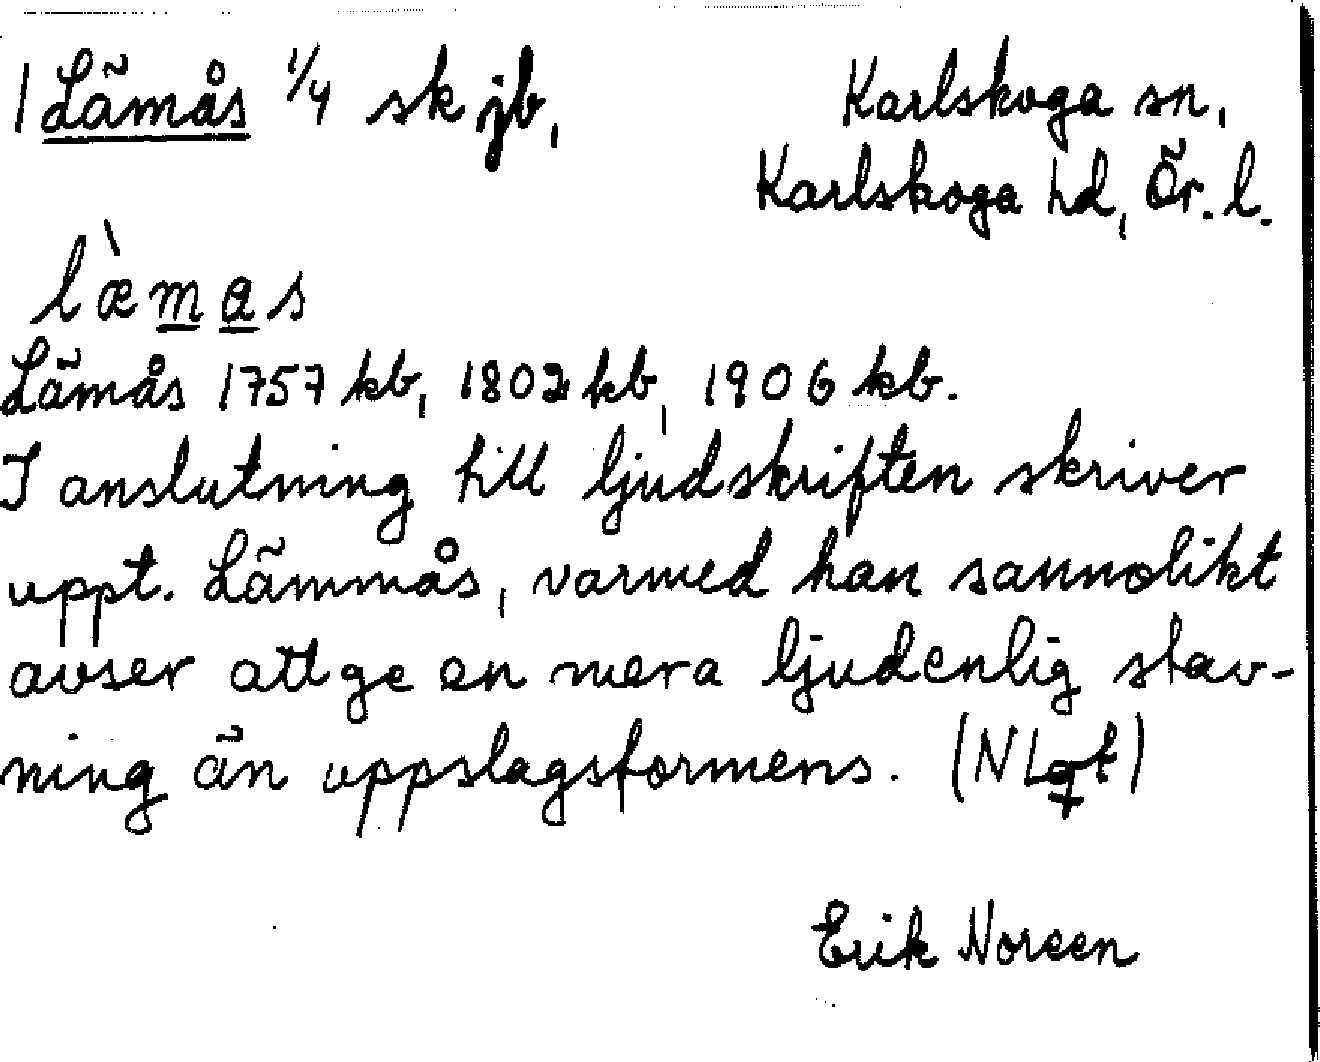 1 Lämås 1/4 sk jb,
Karlskoga sn,
Karlskoga hd, Ör. l.
læ̀mas
Lämås 1757 kb, 1802 kb, 1906 kb.
I anslutning till ljudskriften skriver
uppt. Lämmås, varmed han sannolikt
avser att ge en mera ljudenlig stav-
ning än uppslagsformens.
Erik Noreen